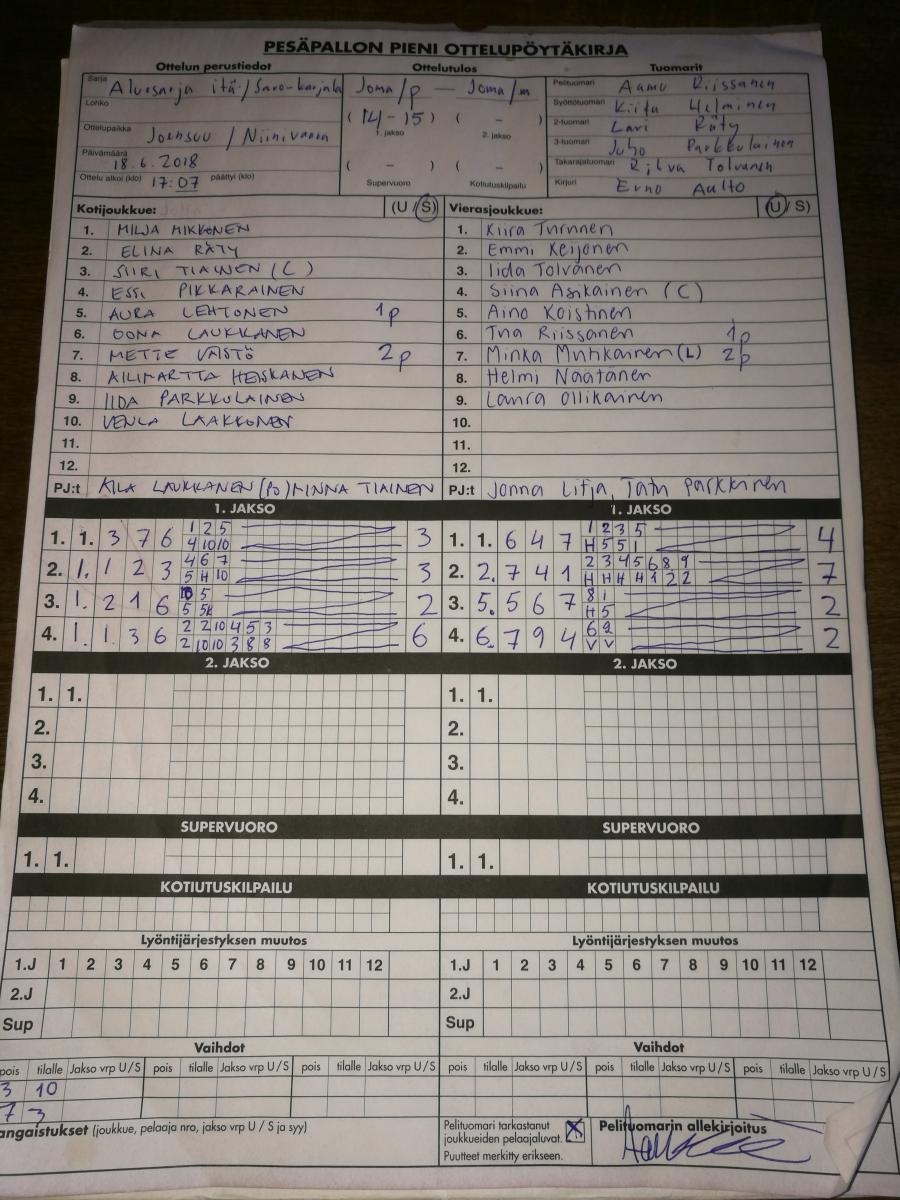 PESÄPALLON PIENI OTTELUPÖYTÄKIRJA
Ottelun perustiedot Ottelutulos Tuomarit
Sarja Aluesarja itä / Savo-Karjala
Lohko
Ottelupaikka Joensuu / Niinivaara
Päivämäärä 18.6.2018
Ottelu alkoi (klo) 17:07 päättyi (klo)
Joma/p — Joma/m
(14-15) ( - )
1. jakso 2. jakso
( - ) ( - )
Supervuoro Kotiutuskilpailu
Pelituomari Aamu Riissanen
Syöttötuomari Helminen
2-tuomari Lari Räty
3-tuomari Juho Parkkulainen
Takarajatuomari Ritva Tolvanen
Kirjuri Eino Aalto
Kotijoukkue: (U / S)
1. MILJA MIKKONEN
2. ELINA RÄTY
3. SIIRI TIAINEN (C)
4. ESSI PIKKARAINEN
5. AURA LEHTONEN 1p
6. OONA LAUKKANEN
7. METTE VÄISTÖ 2p
8. AILIMARTTA HEISKANEN
9. IIDA PARKKULAINEN
10. VENLA LAAKKONEN
11.
12.
PJ:t LAUKKANEN (PJ) MINNA TIAINEN
Vierasjoukkue: (U / S)
1. Kiira Turunen
2. Emmi Keijonen
3. Iida Tolvanen
4. Siina Asikainen (C)
5. Aino Koistinen
6. Ina Riissanen 1p
7. Minka Mutikainen (L) 2p
8. Helmi Näätänen
9. Laura Ollikainen
10.
11.
12.
PJ:t Jonna Litja, Tatu Parkkinen
1. JAKSO
1. 1. 3 7 6 1 2 5 3
4 10 10
2. 1. 1 2 3 4 6 7 3
5 H 10
3. 1. 2 1 6 10 5 2
5 5k
4. 1. 1 3 6 2 2 10 4 5 3 6
2 10 10 3 8 8
1. JAKSO
1. 1. 6 4 7 1 2 3 5 4
H 5 5 1
2. 2. 7 4 1 2 3 4 5 6 8 9 7
H H H H 1 2 2
3. 5. 5 6 7 8 1 2
H 5
4. 6. 7 9 4 6 9 2
V V
2. JAKSO 2. JAKSO
1. 1. 1. 1.
2. 2.
3. 3.
4. 4.
SUPERVUORO SUPERVUORO
1. 1. 1. 1.
KOTIUTUSKILPAILU KOTIUTUSKILPAILU
Lyöntijärjestyksen muutos Lyöntijärjestyksen muutos
1.J 1 2 3 4 5 6 7 8 9 10 11 12 1.J 1 2 3 4 5 6 7 8 9 10 11 12
2.J 2.J
Sup Sup
Vaihdot Vaihdot
pois tilalle Jakso vrp U / S pois tilalle Jakso vrp U / S pois tilalle Jakso vrp U / S pois tilalle Jakso vrp U / S pois tilalle Jakso vrp U / S pois tilalle Jakso vrp U / S
3 10
7 3
angaistukset (joukkue, pelaaja nro, jakso vrp U / S ja syy)
Pelituomari tarkastanut
joukkueiden pelaajaluvat. X
Puutteet merkitty erikseen.
Pelituomarin allekirjoitus